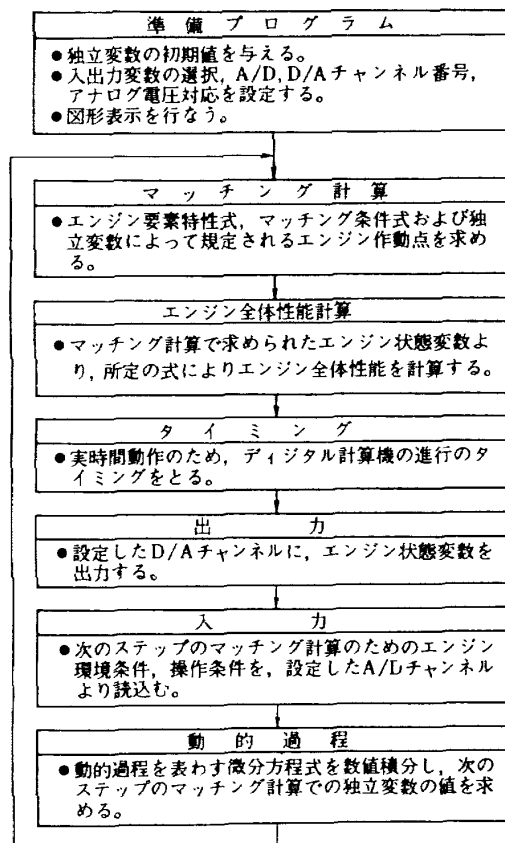 準備プログラム
●独立変数の初期値を与える。
●入出力変数の選択, A/D, D/Aチャンネル番号,
アナログ電圧対応を設定する。
●図形表示を行なう。
マッチング計算
●エンジン要素特性式, マッチング条件式および独
立変数によって規定されるエンジン作動点を求め
る。
エンジン全体性能計算
●マッチング計算で求められたエンジン状態変数よ
り, 所定の式によりエンジン全体性能を計算する。
タイミング
●実時間動作のため, ディジタル計算機の進行のタ
イミングをとる。
出力
●設定したD/Aチャンネルに, エンジン状態変数を
出力する。
入力
●次のステップのマッチング計算のためのエンジン
環境条件, 操作条件を, 設定したA/Dチャンネル
より読込む。
動的過程
●動的過程を表わす微分方程式を数値積分し, 次の
ステップのマッチング計算での独立変数の値を求
める。